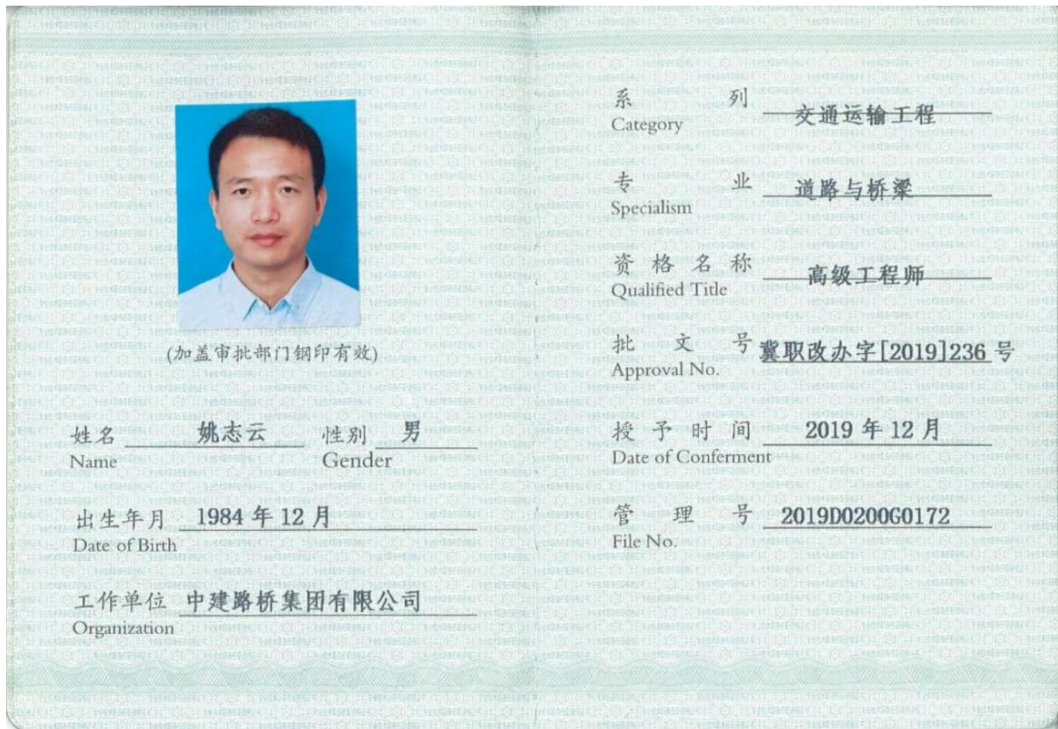 (加盖审批部门钢印有效)
姓名 姚志云 性别 男
Name Gender
出生年月 1984 年 12 月
Date of Birth
工作单位 中建路桥集团有限公司
Organization
系 列 交通运输工程
Category
专 业 道路与桥梁
Specialism
资 格 名 称 高级工程师
Qualified Title
批 文 号 冀职改办字[2019]236 号
Approval No.
授 予 时 间 2019 年 12 月
Date of Conferment
管 理 号 2019D0200G0172
File No.